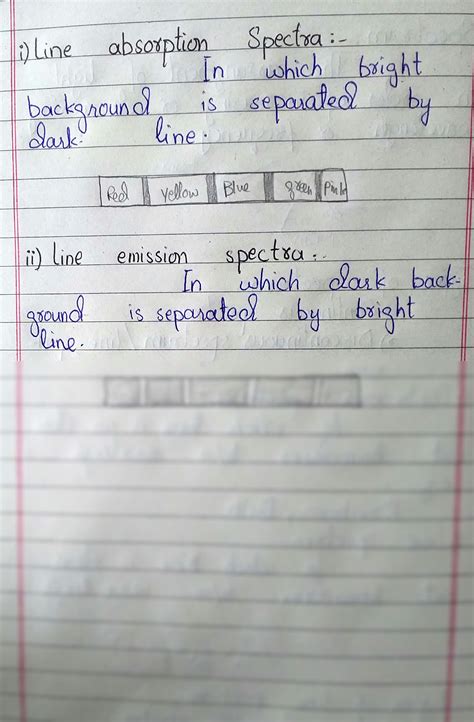 i) Line absorption Spectra:-
In which bright
background is separated by
dark line.
Red yellow Blue green Pink
ii) Line emission spectra:-
In which dark back-
ground is separated by bright
line.